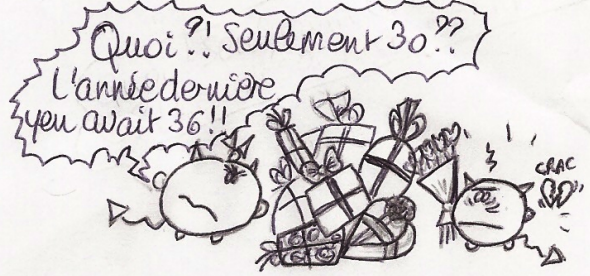 Quoi?! Seulement 30??
L'année dernière
yen avait 36!!
CRAC